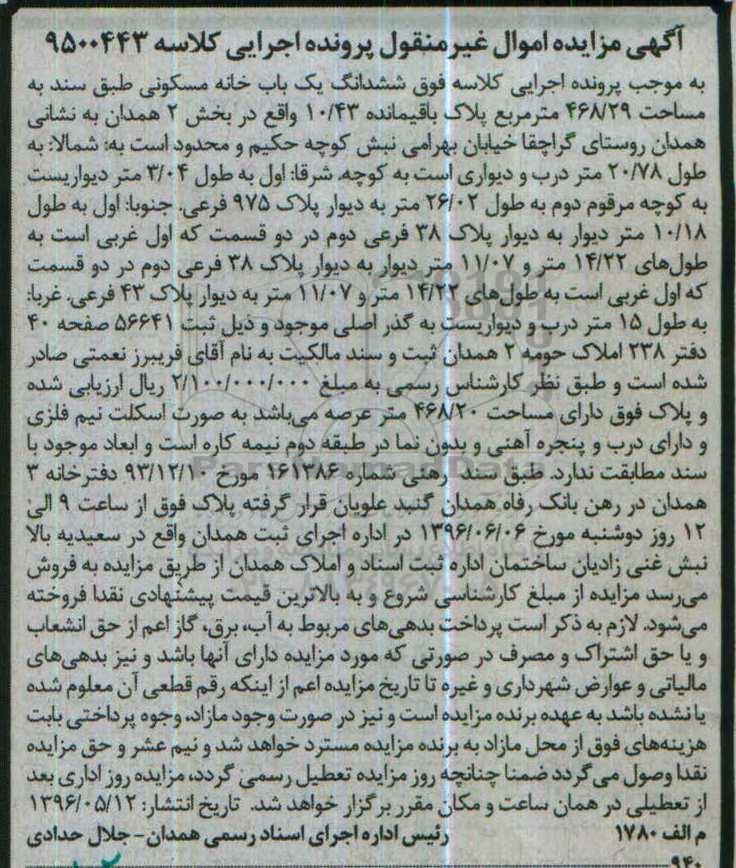 آگهی مزایده اموال غیرمنقول پرونده اجرایی کلاسه ۹۵۰۰۴۴۳
به موجب پرونده اجرایی کلاسه فوق ششدانگ یک باب خانه مسکونی طبق سند به
مساحت ۴۶۸/۲۹ مترمربع پلاک باقیمانده ۱۰/۴۳ واقع در بخش ۲ همدان به نشانی
همدان روستای گراچقا خیابان بهرامی نبش کوچه حکیم و محدود است به: شمالا: به
طول ۲۰/۷۸ متر درب و دیواری است به کوچه. شرقا: اول به طول ۳/۰۴ متر دیواریست
به کوچه مرقوم دوم به طول ۲۶/۰۲ متر به دیوار پلاک ۹۷۵ فرعی. جنوبا: اول به طول
۱۰/۱۸ متر دیوار به دیوار پلاک ۳۸ فرعی دوم در دو قسمت که اول غربی است به
طول‌های ۱۴/۲۲ متر و ۱۱/۰۷ متر دیوار به دیوار پلاک ۳۸ فرعی دوم در دو قسمت
که اول غربی است به طول‌های ۱۴/۲۲ متر و ۱۱/۰۷ متر به دیوار پلاک ۴۳ فرعی. غربا:
به طول ۱۵ متر درب و دیواریست به گذر اصلی موجود و ذیل ثبت ۵۶۶۴۱ صفحه ۴۰
دفتر ۲۳۸ املاک حومه ۲ همدان ثبت و سند مالکیت به نام آقای فریبرز نعمتی صادر
شده است و طبق نظر کارشناس رسمی به مبلغ ۲/۱۰۰/۰۰۰/۰۰۰ ریال ارزیابی شده
و پلاک فوق دارای مساحت ۴۶۸/۲۰ متر عرصه می‌باشد به صورت اسکلت نیم فلزی
و دارای درب و پنجره آهنی و بدون نما در طبقه دوم نیمه کاره است و ابعاد موجود با
سند مطابقت ندارد. طبق سند رهنی شماره ۱۶۱۳۸۶ مورخ ۹۳/۱۲/۱۰ دفترخانه ۳
همدان در رهن بانک رفاه همدان گنبد علویان قرار گرفته پلاک فوق از ساعت ۹ الی
۱۲ روز دوشنبه مورخ ۱۳۹۶/۰۶/۰۶ در اداره اجرای ثبت همدان واقع در سعیدیه بالا
نبش غنی زادیان ساختمان اداره ثبت اسناد و املاک همدان از طریق مزایده به فروش
می‌رسد مزایده از مبلغ کارشناسی شروع و به بالاترین قیمت پیشنهادی نقدا فروخته
می‌شود. لازم به ذکر است پرداخت بدهی‌های مربوط به آب، برق، گاز اعم از حق انشعاب
و یا حق اشتراک و مصرف در صورتی که مورد مزایده دارای آنها باشد و نیز بدهی‌های
مالیاتی و عوارض شهرداری و غیره تا تاریخ مزایده اعم از اینکه رقم قطعی آن معلوم شده
یا نشده باشد به عهده برنده مزایده است و نیز در صورت وجود مازاد، وجوه پرداختی بابت
هزینه‌های فوق از محل مازاد به برنده مزایده مسترد خواهد شد و نیم عشر و حق مزایده
نقدا وصول می‌گردد ضمنا چنانچه روز مزایده تعطیل رسمی گردد، مزایده روز اداری بعد
از تعطیلی در همان ساعت و مکان مقرر برگزار خواهد شد. تاریخ انتشار: ۱۳۹۶/۰۵/۱۲
م الف ۱۷۸۰ رئیس اداره اجرای اسناد رسمی همدان - جلال حدادی
۹۴۰